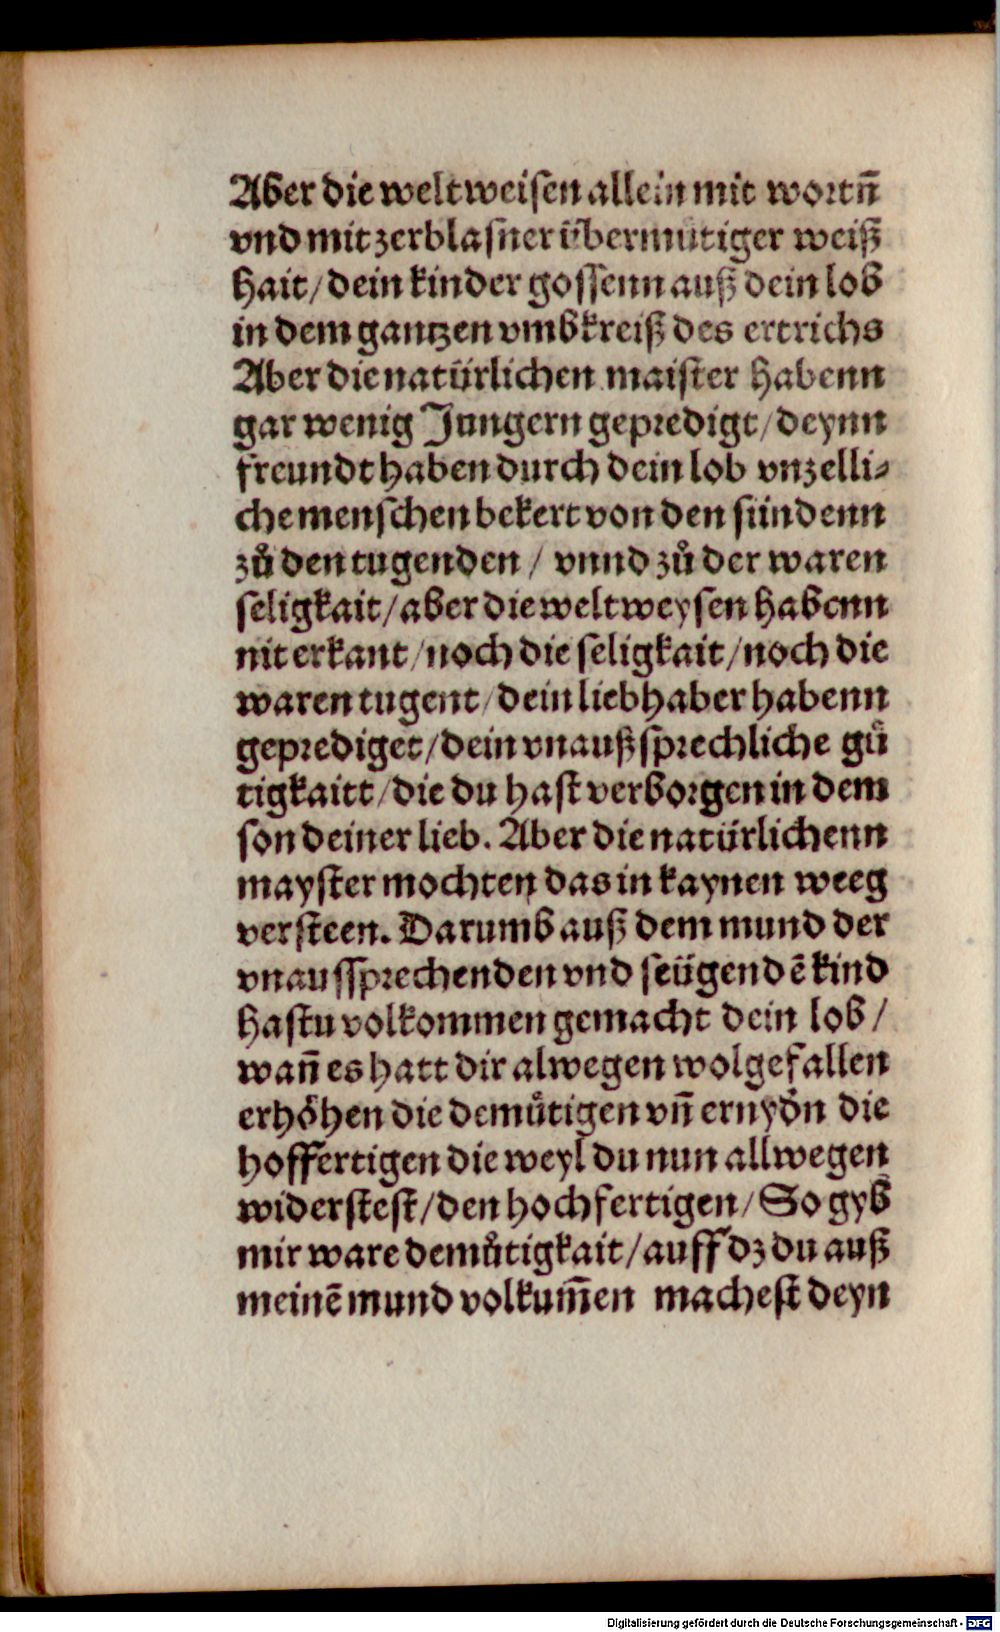 Aber die weltweisen allein mit wortn̄
vnd mit zerblasner übermütiger weiß
hait/dein kinder gossenn auß dein lob
in dem gantzen vmbkreiß des ertrichs
Aber die natürlichen maister habenn
gar wenig Jungern gepredigt/deynn
freundt haben durch dein lob vnzelli⸗
che menschen bekert von den sündenn
zů den tugenden / vnnd zů der waren
seligkait/aber die weltweysen habenn
nit erkant/noch die seligkait/noch die
waren tugent/dein liebhaber habenn
geprediget/dein vnaußsprechliche gů
tigkaitt/die du hast verborgen in dem
son deiner lieb. Aber die natürlichenn
mayster mochten das in kaynen weeg
versteen. Darumb auß dem mund der
vnaussprechenden vnd seügendē kind
hastu volkommen gemacht dein lob/
wan̄ es hatt dir alwegen wolgefallen
erhöhen die demůtigen vn̄ ernydn̄ die
hoffertigen die weyl du nun allwegen
widerstest/den hochfertigen/So gyb
mir ware demůtigkait/auff dz du auß
meinē mund volkum̄en machest deyn
Digitalisierung gefördert durch die Deutsche Forschungsgemeinschaft - DFG